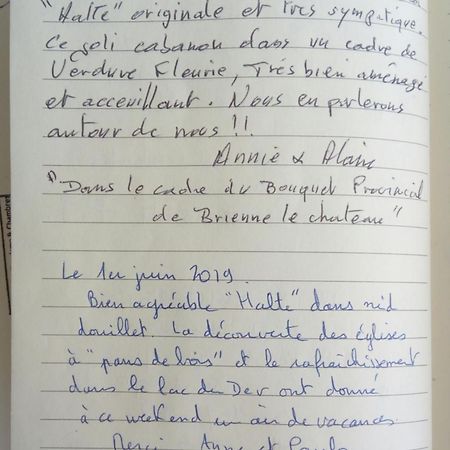 "Halte" originale et très sympatique.
Ce joli cabanon dans un cadre de
Verdure Fleurie, Très bien aménagé
et acceuillant. Nous en parlerons
autour de nous !!
Annie & Alain
"Dans le cadre du Bouquet Provincial
de Brienne le chateau"
Le 1er juin 2019.
Bien agréable "Halte" dans nid
douillet. La découverte des églises
à "pans de bois" et le rafraîchissement
dans le lac du Der ont donné
à ce weekend un air de vacances.
Merci Anne et